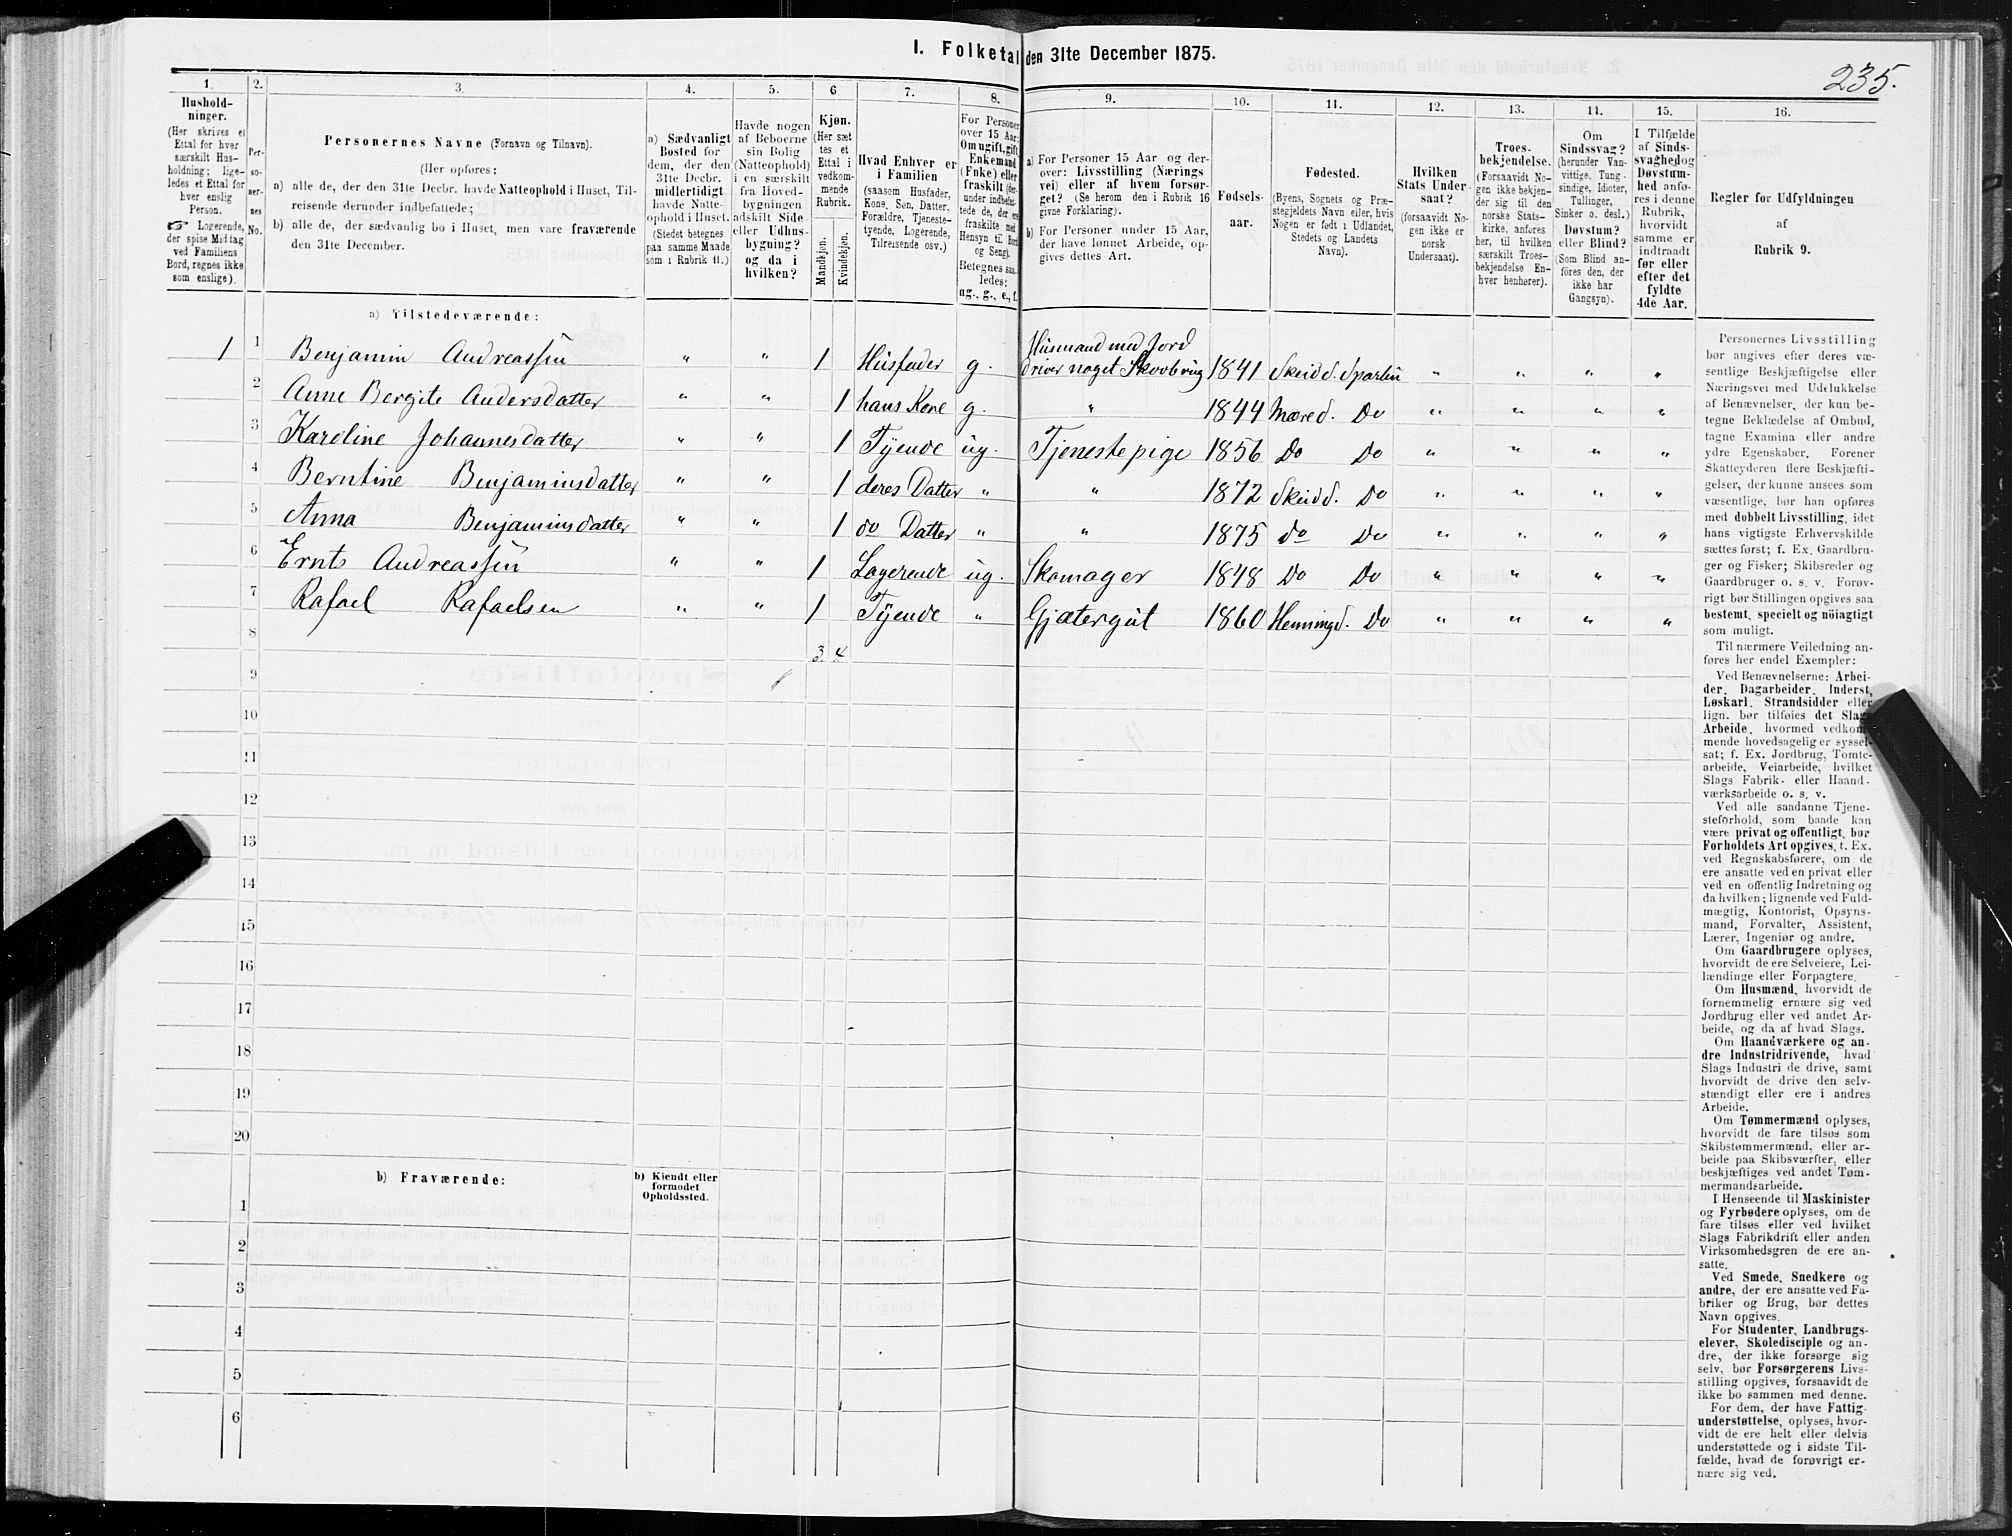 I. Folketal den 31te December 1875.
235.
1.
Hushold-
ninger.
(Her skrives et
Ettal for hver
særskilt Hus-
holdning; lige-
ledes et Ettal for
hver enslig
Person.
☛ Logerende,
der spise Middag
ved Familiens
Bord, regnes ikke
som enslige).
2.
Per-
so-
ner-
nes
No.
3.
Personernes Navne (Fornavn og Tilnavn).
(Her opføres:
a) alle de, der den 31te Decbr. havde Natteophold i Huset, Til-
reisende derunder indbefattede;
b) alle de, der sædvanlig bo i Huset, men vare fraværende
den 31te December.
4.
a) Sædvanligt
Bosted for
dem, der den
31te Decbr.
midlertidigt
havde Natte-
ophold i Huset.
(Stedet betegnes
paa samme Maade
som i Rubrik 11.)
5.
Havde nogen
af Beboerne
sin Bolig
(Natteophold)
i en særskilt
fra Hoved-
bygningen
adskilt Side
eller Udhus-
bygning?
og da i
hvilken?
6
Kjøn.
(Her sæt
tes et
Ettal i
vedkom-
mende
Rubrik.
Mandkjøn.
Kvindekjøn.
7.
Hvad Enhver er
i Familien
(saasom Husfader,
Kone, Søn, Datter,
Forældre, Tjeneste-
tyende, Logerende,
Tilreisende osv.)
8.
For Personer
over 15 Aar:
Om ugift, gift,
Enkemand
(Enke) eller
fraskilt (der-
under indbefat-
tede de, der ere
fraskilte med
Hensyn til Bord
og Seng).
Betegnes saa-
ledes:
ug., g., e., f.
9.
a) For Personer 15 Aar og der-
over: Livsstilling (Nærings
vei) eller af hvem forsør-
get? (Se herom den i Rubrik 16
givne Forklaring).
b) For Personer under 15 Aar,
der have lønnet Arbeide, op-
gives dettes Art.
10.
Fødsels-
aar.
11.
Fødested.
(Byens, Sognets og Præ-
stegjeldets Navn eller, hvis
Nogen er født i Udlandet,
Stedets og Landets
Navn).
12.
Hvilken
Stats Under-
saat?
(forsaavidt No-
gen ikke er
norsk
Undersaat).
13.
Troes-
bekjendelse.
(Forsaavidt No-
gen ikke bekjen-
der sig til den
norske Stats-
kirke, anføres
her, til hvilken
særskilt Troes-
bekjendelse En-
hver henhører).
14.
Om
Sindssvag?
(herunder Van-
vittige, Tung-
sindige, Idioter,
Tullinger,
Sinker o. desl.)
Døvstum?
eller Blind?
(Som Blind an-
føres den, der
ikke har
Gangsyn).
15.
I Tilfælde
af Sinds-
svaghed og
Døvstum-
hed anfø-
res i denne
Rubrik,
hvorvidt
samme er
indtraadt
før eller
efter det
fyldte
4de Aar.
16.
Regler for Udfyldningen
af
Rubrik 9.
a) Tilstedeværende:
1 1 Benjamin Andreassen " " 1 Husfader g. Husmand med Jord
driver noget Skovbrug 1841 Skeid S. Sparbu " " " "
2 Anne Bergite Andersdatter " " 1 hans Kone g. " 1844 Mære S. Do " " " "
3 Karoline Johannesdatter " " 1 Tyende ug. Tjenestepige 1856 Do Do " " " "
4 Berntine Benjaminsdatter " " 1 deres Datter " " 1872 Skeid S. Do " " " "
5 Anna Benjaminsdatter " " 1 do Datter " " 1875 do Do " " " "
6 Ernts Andreassen " " 1 Logerende ug. Skomager 1848 Do Do " " " "
7 Rafael Rafaelsen " " 1 Tyende " Gjætergut 1860 Henning S. Do " " " "
8 3. 4.
9
10
11
12
13
14
15
16
17
18
19
20
b) Fraværende:
b) Kjendt eller
formodet
Opholdssted.
1
2
3
4
5
6
Personernes Livsstilling
bør angives efter deres væ-
sentlige Beskjæftigelse eller
Næringsvei med Udelukkelse
af Benævnelser, der kun be-
tegne Beklædelse af Ombud,
tagne Examina eller andre
ydre Egenskaber. Forener
Skatteyderen flere Beskjæfti-
gelser, der kunne ansees som
væsentlige, bør han opføres
med dobbelt Livsstilling, idet
hans vigtigste Erhvervskilde
sættes først; f. Ex. Gaardbru-
ger og Fisker; Skibsreder og
Gaardbruger o. s. v. Forøv-
rigt bør Stillingen opgives saa
bestemt, specielt og nöiagtigt
som muligt.
Til nærmere Veiledning an-
føres her endel Exempler:
Ved Benævnelserne: Arbei-
der, Dagarbeider, Inderst,
Løskarl, Strandsidder eller
lign. bør tilføies det Slags
Arbeide, hvormed vedkom-
mende hovedsagelig er syssel-
sat; f. Ex. Jordbrug, Tomte-
arbeide, Veiarbeide, hvilket
Slags Fabrik- eller Haand-
værksarbeide o. s. v.
Ved alle saadanne Tjene-
steforhold, som baade kan
være privat og offentligt, bør
Forholdets Art opgives, f. Ex.
ved Regnskabsførere, om de
ere ansatte ved en privat eller
ved en offentlig Indretning og
da hvilken; lignende ved Fuld-
mægtig, Kontorist, Opsyns-
mand, Forvalter, Assistent,
Lærer, Ingeniør og andre.
Om Gaardbrugere oplyses,
hvorvidt de ere Selveiere, Lei-
lændinge eller Forpagtere.
Om Husmænd, hvorvidt de
fornemmelig ernære sig ved
Jordbrug eller ved andet Ar-
beide, og da af hvad Slags.
Om Haandværkere og an-
dre Industridrivende, hvad
Slags Industri de drive, samt
hvorvidt de drive den selv-
stændigt eller ere i andres
Arbeide.
Om Tømmermænd oplyses,
hvorvidt de fare tilsøs som
Skibstømmermænd, eller ar-
beide paa Skibsværfter, eller
beskjæftiges ved andet Tøm-
mermandsarbeide.
I Henseende til Maskinister
og Fyrbødere oplyses, om de
fare tilsøs eller ved hvilket
Slags Fabrikdrift eller anden
Virksomhedsgren de ere an-
satte.
Ved Smede, Snedkere og
andre, der ere ansatte ved Fa-
briker og Brug, bør dettes
Navn opgives.
For Studenter, Landbrugs-
elever, Skoledisciple og an-
dre, der ikke forsørge sig
selv, bør Forsørgerens Livs-
stilling opgives, forsaavidt de
ikke bo sammen med denne.
For dem, der have Fattig-
understøttelse, oplyses, hvor-
vidt de ere helt eller delvis
understøttede og i sidste Til-
fælde, hvad de forøvrigt er-
nære sig ved.